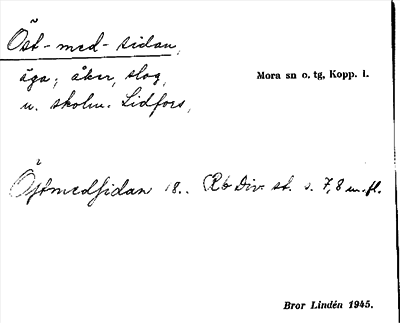 Öst-med-sidan,
äga; åker, slog,
Mora sn o. tg, Kopp. l.
u. skolm. Lidfors,
Öſtmedſidan 18.. Rb Div. st. v. 7,8 m.fl.
Bror Lindén 1945.